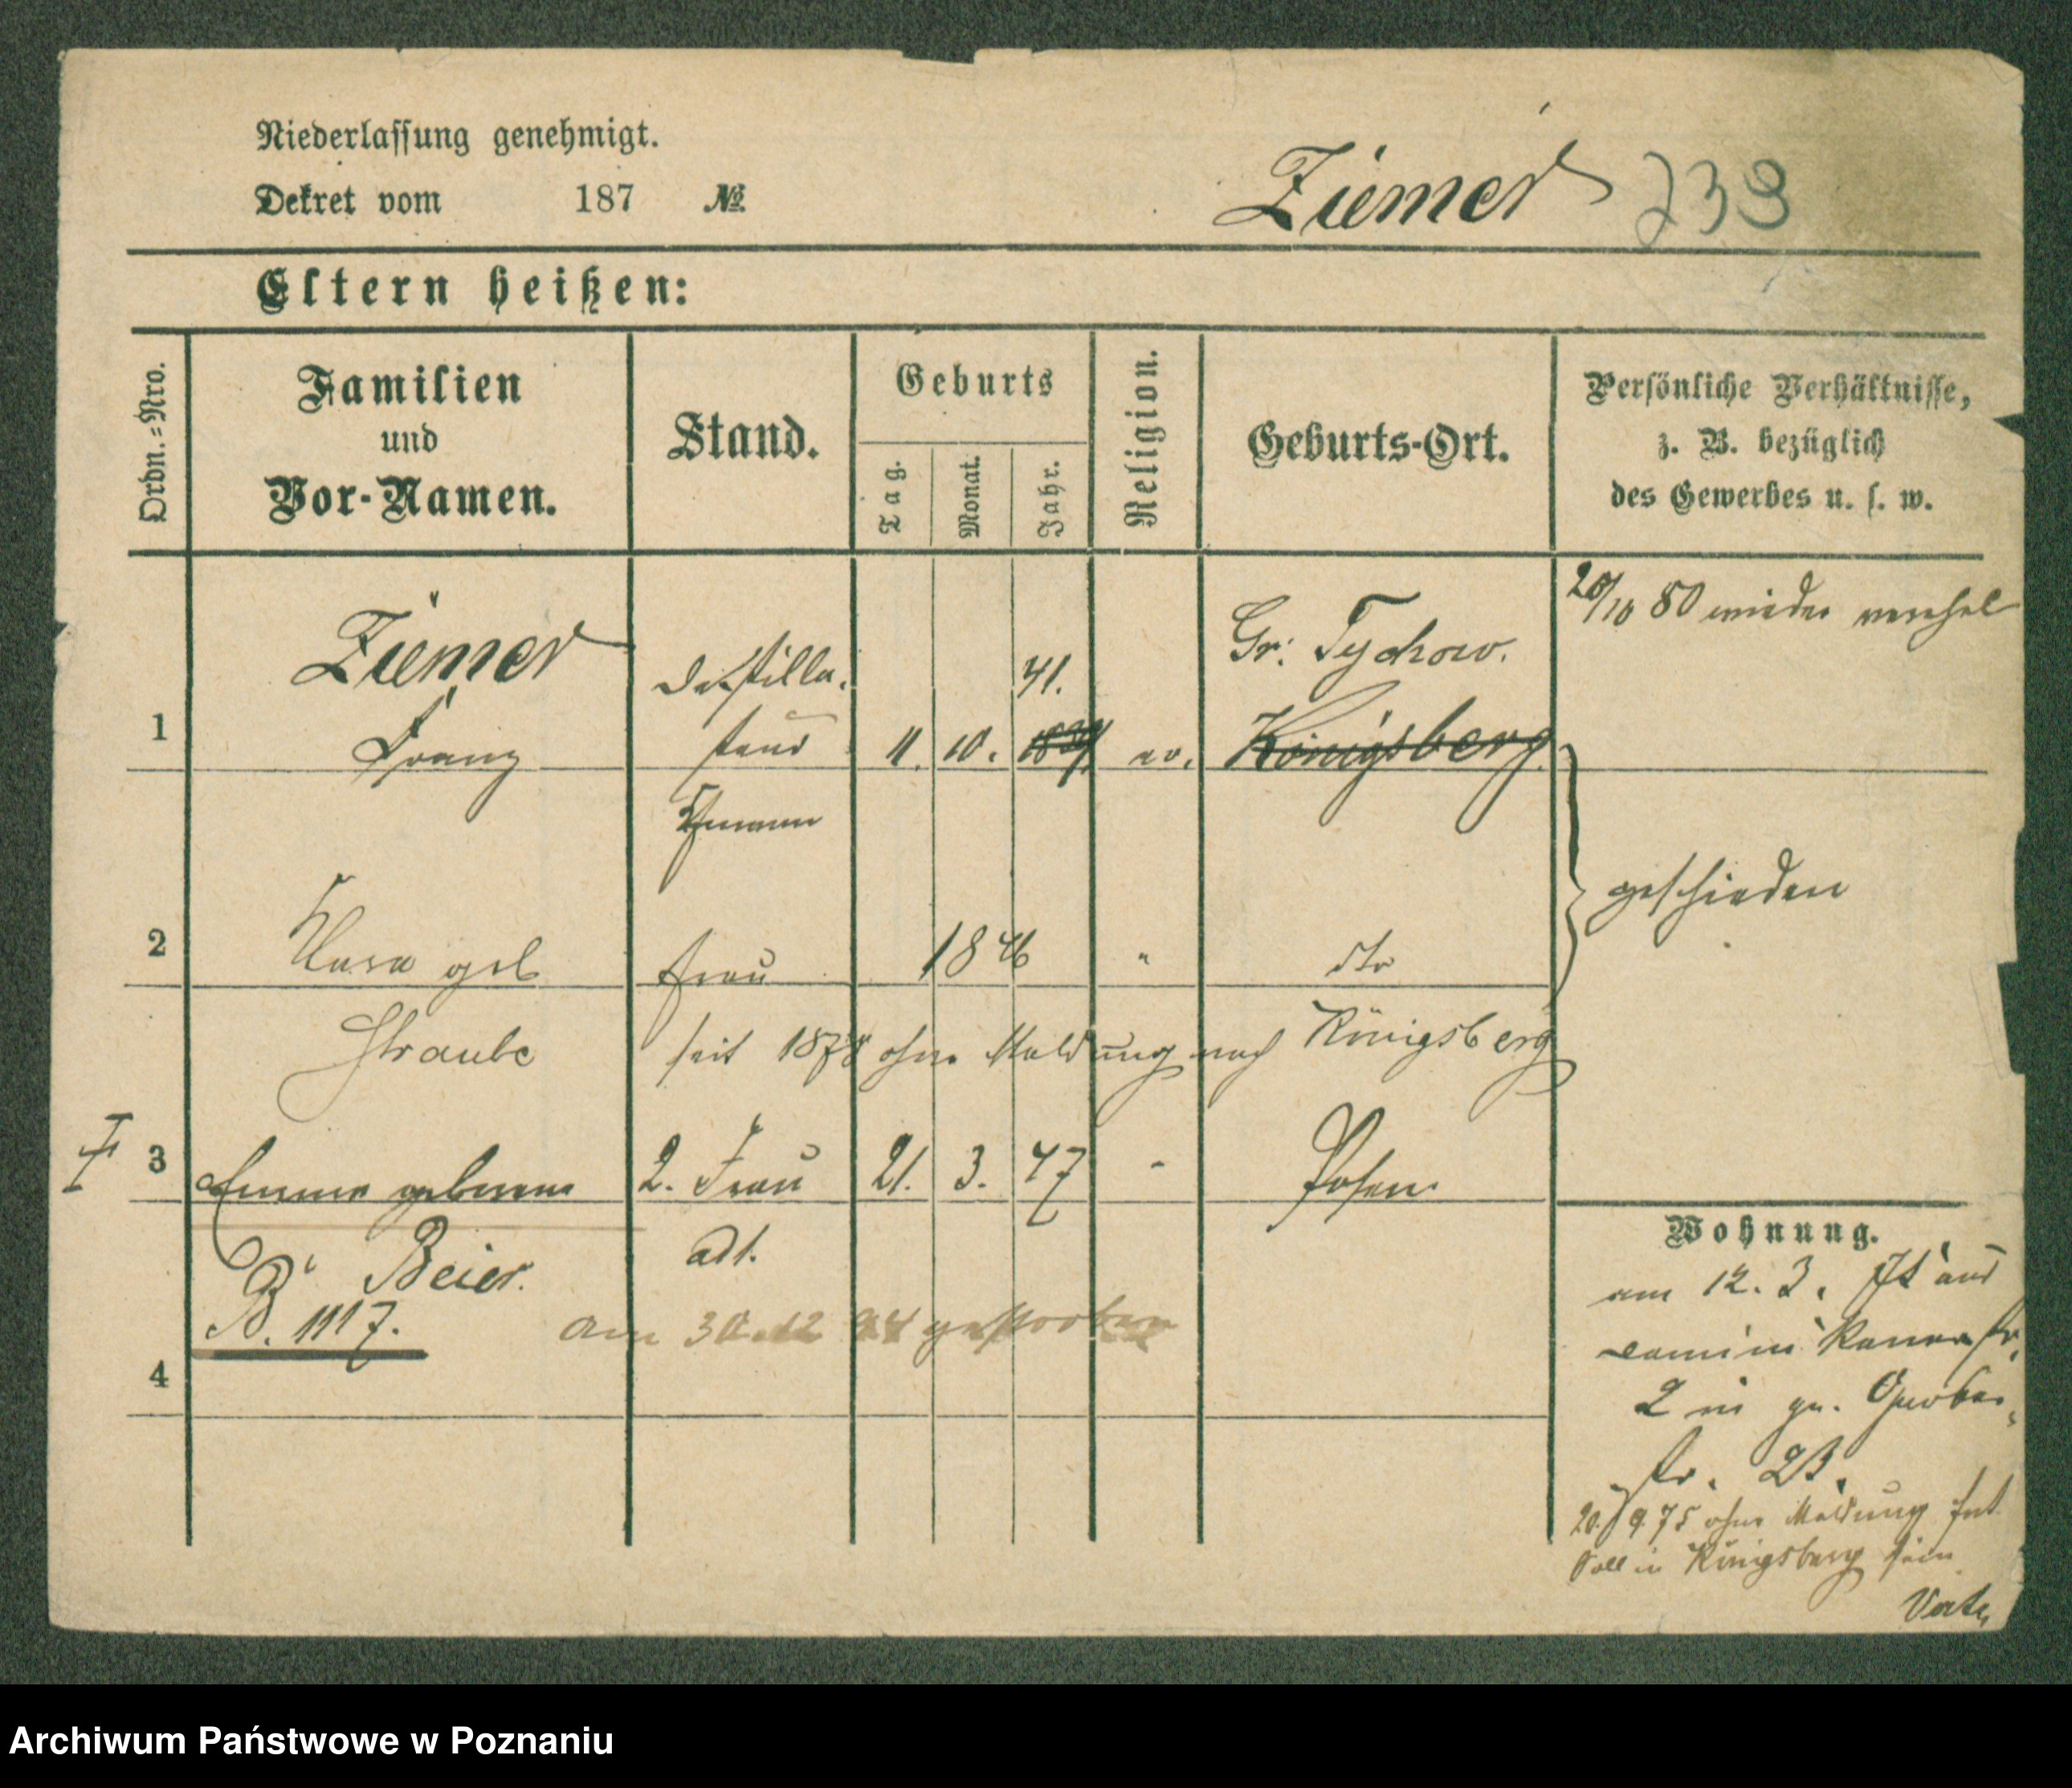 Niederlassung genehmigt.
Dekret vom 187 №
Ziemer 239
Eltern heißen:
Ordn.=Nro.
Familien
und
Vor-Namen.
Stand.
Geburts
Tag.
Monat.
Jahr.
Religion.
Geburts-Ort.
Persönliche Verhältnisse,
z. B. bezüglich
des Gewerbes u. s. w.
20/10 80 wieder verehel
Ziemer
Gr: Tychow.
Destilla-
41.
1
Franz
teur
11. 10.
ev.
Königsberg
geschieden
2
Klara geb
Frau
1846
"
dto
Straube
seit 1878 ohne Meldung nach Königsberg
3
Emma geborene
2. Frau
21. 3. 47
-
Posen
Beier.
adt.
B. 1117.
am 30.12 94 gestorben
4
Wohnung.
am 12. 3.
2 in gr. Gerber-
str. 23.
20./9 75 ohne Meldung fort
soll in Königsberg sein
Archiwum Państwowe w Poznaniu